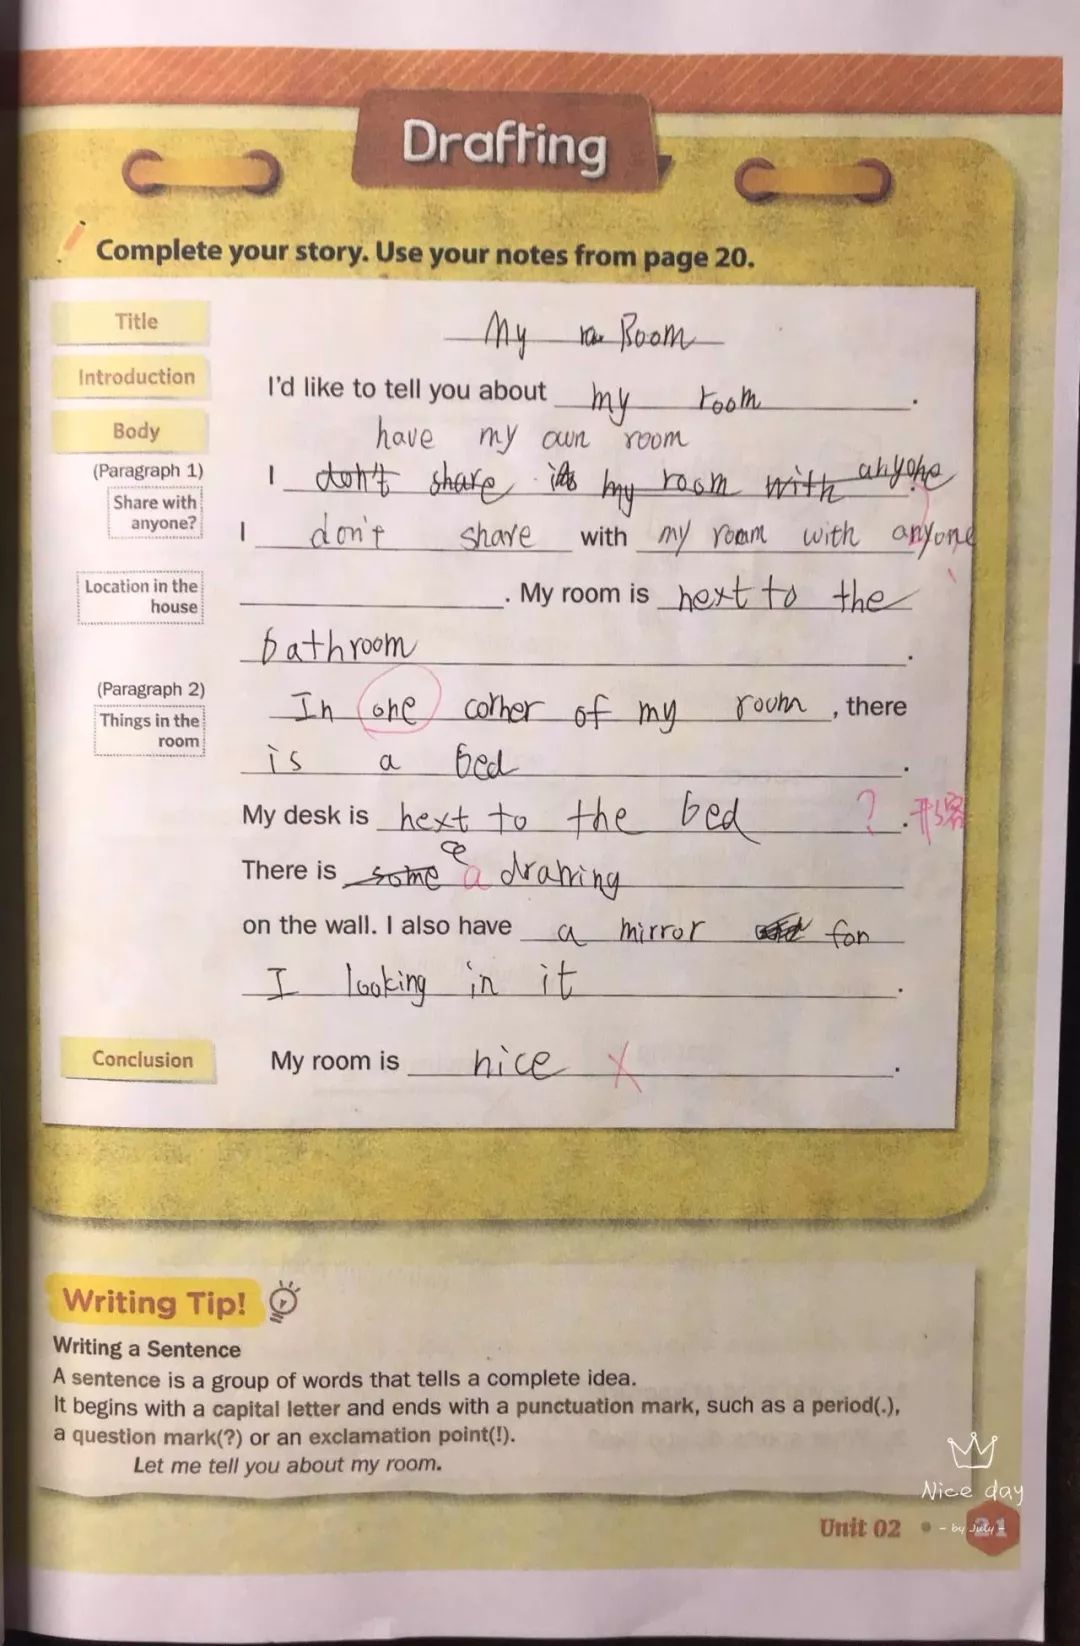 Drafting
Complete your story. Use your notes from page 20.
Title
My Room
Introduction
I'd like to tell you about my room.
Body
have my own room
(Paragraph 1)
I don't share my room with anyone
Share with anyone?
I don't share with my room with anyone
Location in the house
. My room is next to the
bathroom.
(Paragraph 2)
In one corner of my room, there
Things in the room
is a bed.
My desk is next to the bed ?.
There is some a drawing
on the wall. I also have a mirror for
I looking in it.
Conclusion
My room is nice X.
Writing Tip!
Writing a Sentence
A sentence is a group of words that tells a complete idea.
It begins with a capital letter and ends with a punctuation mark, such as a period(.),
a question mark(?) or an exclamation point(!).
Let me tell you about my room.
Nice day
Unit 02 • - by July - 21